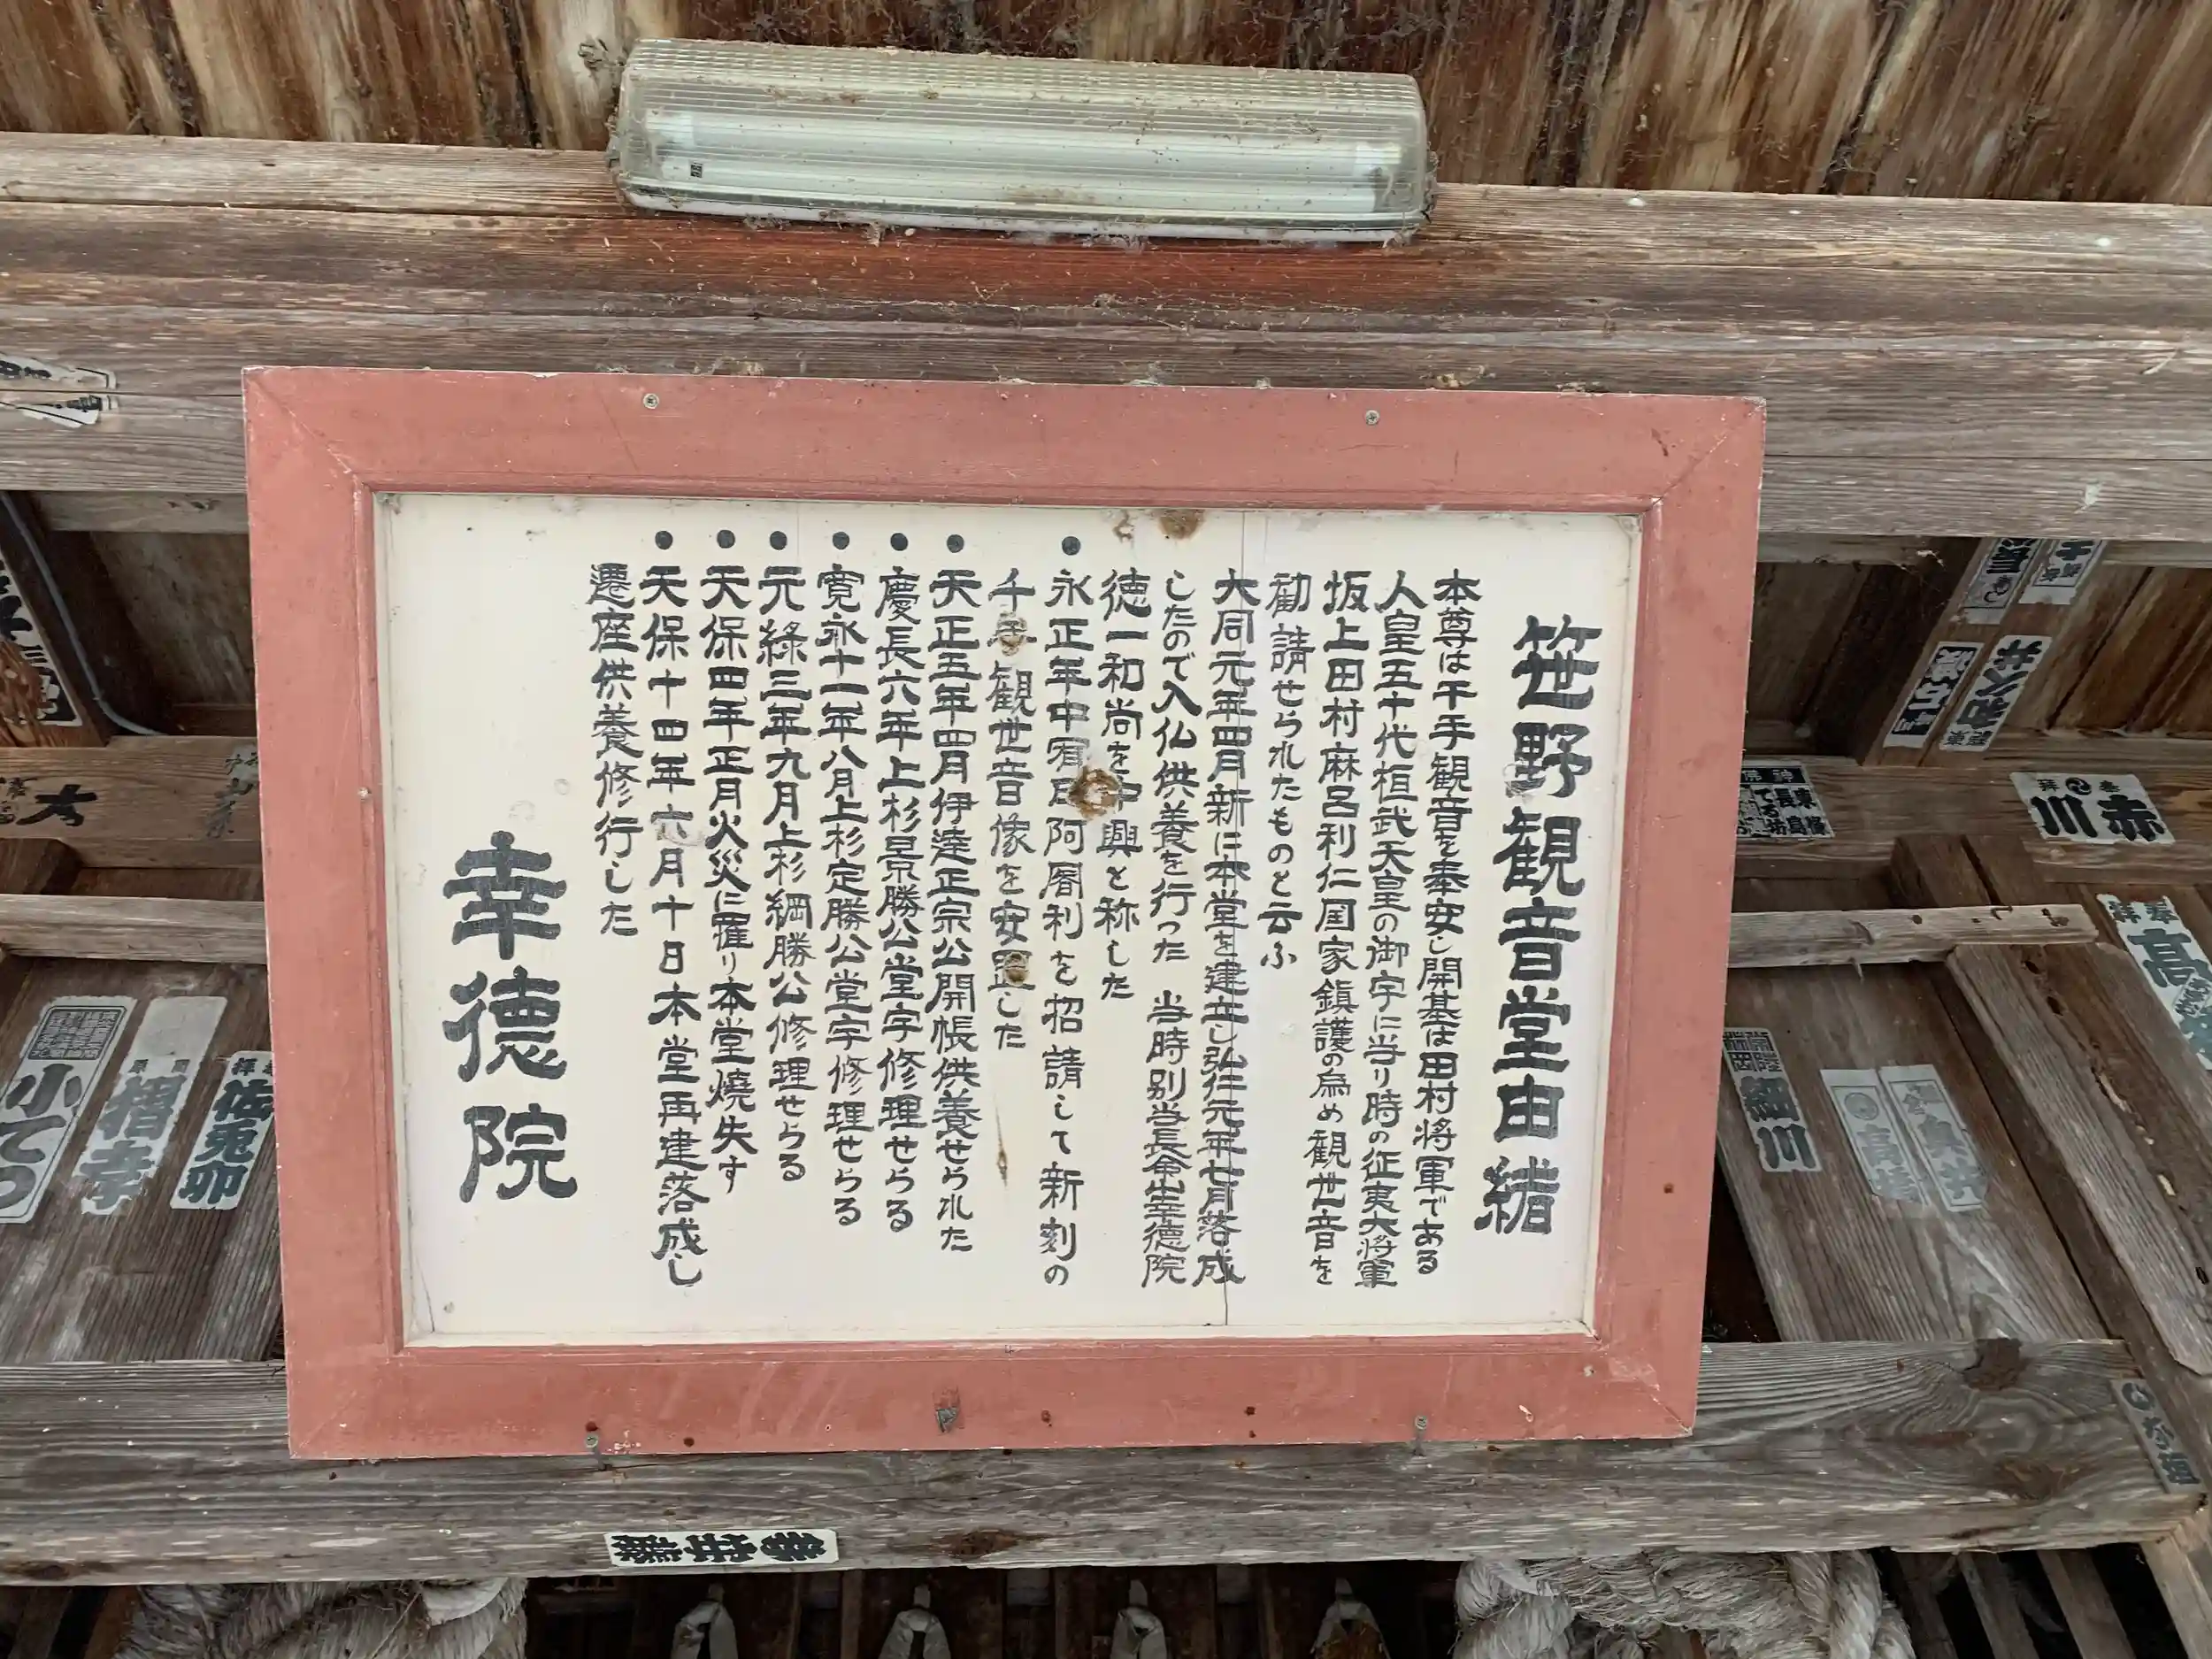 笹野観音堂由緒
本尊は千手観音を奉安し開基は田村将軍である
人皇五十代桓武天皇の御宇に当り時の征夷大将軍
坂上田村麻呂利仁国家鎮護の為め観世音を
勧請せられたものと云ふ
大同元年四月新に本堂を建立し弘仁元年七月落成
したので入仏供養を行った 当時別当長命山幸徳院
徳一和尚を中興と称した
●永正年中宥日阿闍利を招請して新刻の
千手観世音像を安置した
●天正五年四月伊達正宗公開帳供養せられた
●慶長六年上杉景勝公堂宇修理せらる
●寛永十一年八月上杉定勝公堂宇修理せらる
●元緑三年九月上杉綱勝公修理せらる
●天保四年正月火災に罹り本堂焼失す
●天保十四年六月十日本堂再建落成し
遷座供養修行した
幸徳院
赤川
和久井
細川
小てつ
佐兎卯